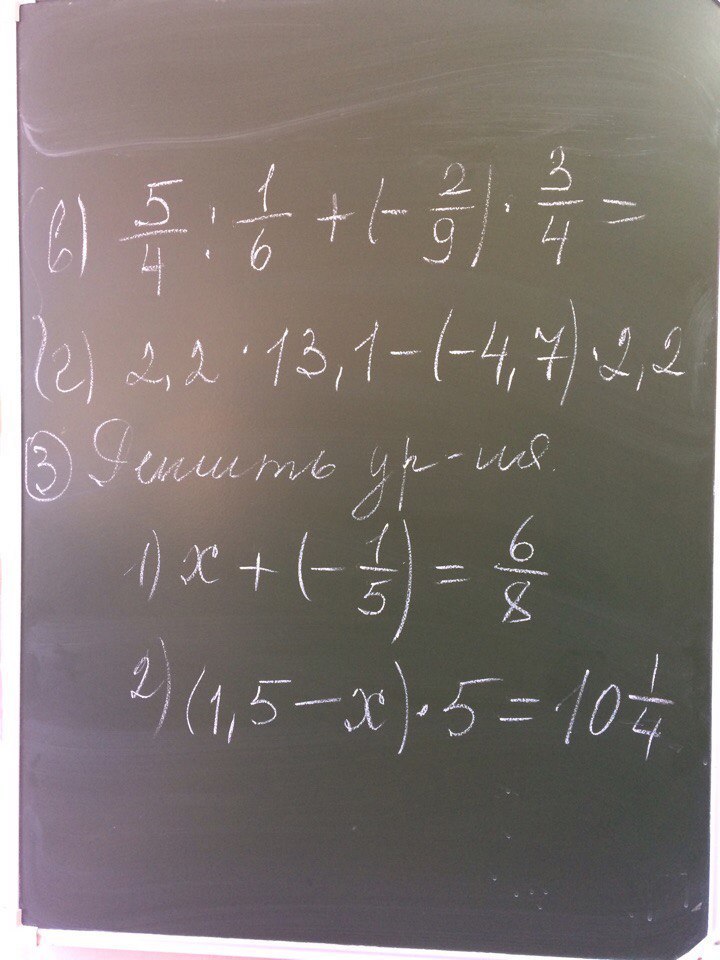 в) 5/4 : 1/6 + (- 2/9) · 3/4 =
г) 2,2 · 13,1 - (-4,7) · 2,2
③ Решить ур-ия.
1) x + (- 1/5) = 6/8
2) (1,5 - x) · 5 = 10 1/4